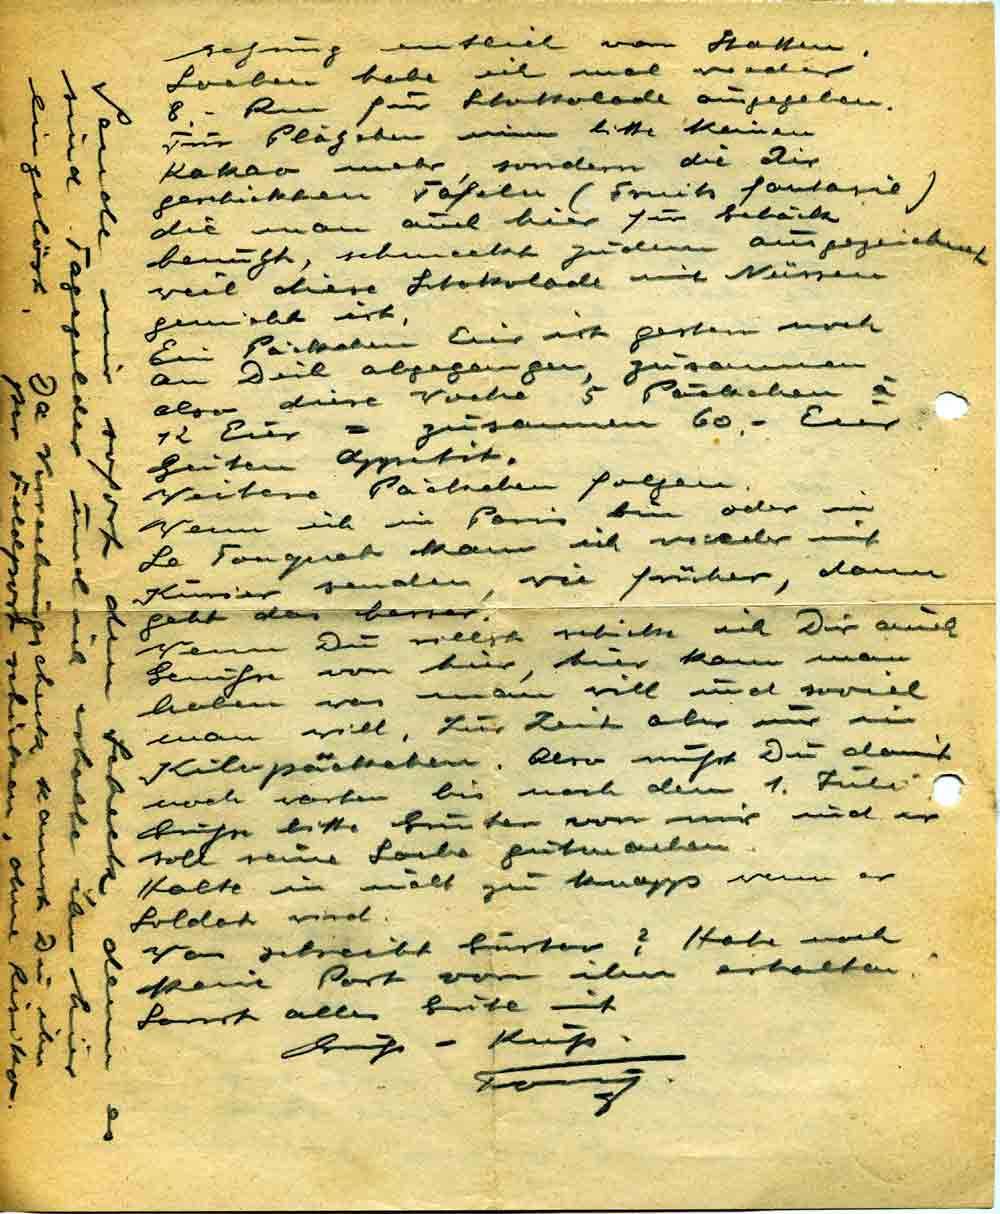 entlich von Statten.
Soeben habe ich mal wieder
8.- Rm für Schokolade ausgegeben.
Für Plätzchen nimm bitte keinen
Kakao mehr, sondern die Dir
geschickten Tafeln (Fruits fantasie)
die man auch hier für Gebäck
benutzt, schmeckt zudem ausgezeichnet
weil diese Schokolade mit Nüssen
gemischt ist.
Ein Päckchen Eier ist gestern noch
an Deil abgegangen, zusammen
also diese Woche 5 Päckchen à
12 Eier = zusammen 60.- Eier
Guten Appetit.
Weitere Päckchen folgen.
Wenn ich in Paris bin oder in
Le Touquet kann ich wieder mit
Kurier senden, wie früher, dann
geht das besser.
Wenn Du willst schicke ich Dir auch
Gemüse von hier, hier kann man
haben was man will und soviel
man will. Zur Zeit aber nur in
Kilopäckchen. Also mußt Du damit
noch warten bis nach dem 1. Juli.
Grüße bitte Günter von mir und er
soll seine Sache gutmachen.
Halte in nicht zu knapp wenn er
Soldat wird.
Was schreibt Gustav? Habe noch
keine Post von ihm erhalten.
Sonst alles Gute mit
Gruß - Kuß.
Sende mir sofort den Scheck denn es
sind Tagegelder und ich erhalte ihn hier
eingelöst. Da Verrechnungscheck kannst Du ihn
per Feldpost schicken, ohne Risiko.